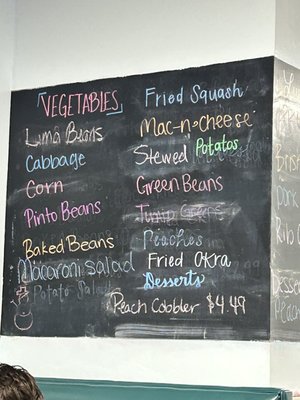 VEGETABLES
Lima Beans
Cabbage
Corn
Pinto Beans
Baked Beans
Macaroni Salad
Potato Salad
Fried Squash
Mac-n-cheese
Stewed Potatos
Green Beans
Turnip Greens
Peaches
Fried Okra
Desserts
Peach Cobbler $4.49